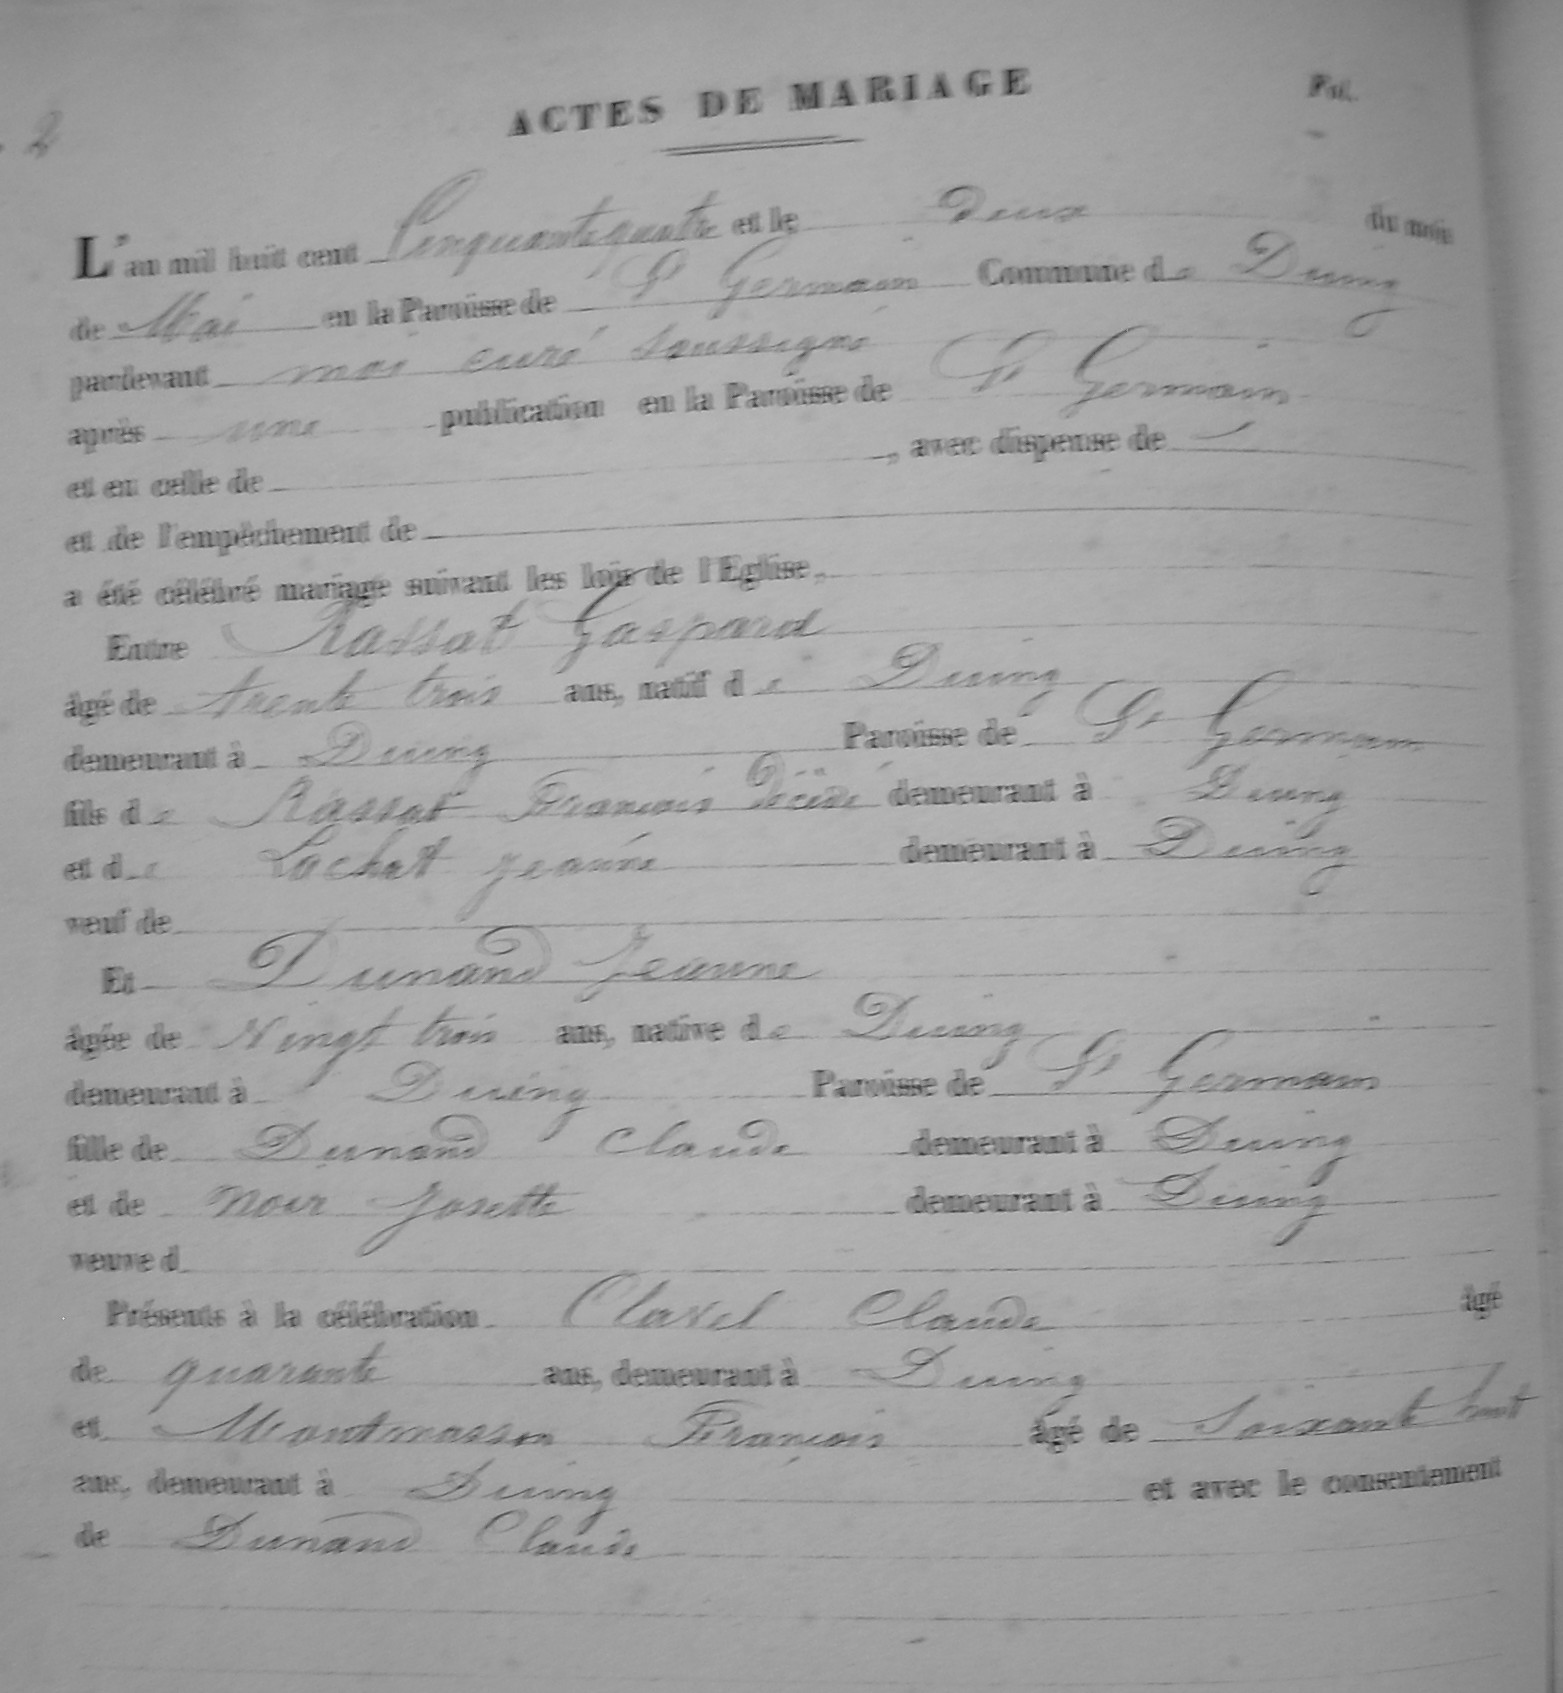 ACTES DE MARIAGE
Fol.
2
L'an mil huit cent Cinquante quatre et le deux du mois
de Mai en la Paroisse de St Germain Commune de Duing
pardevant moi curé soussigné
après une publication en la Paroisse de St Germain
et en celle de , avec dispense de
et de l'empêchement de
a été célébré mariage suivant les lois de l'Eglise,
Entre Rassat Gaspard
âgé de trente trois ans, natif de Duing
demeurant à Duing Paroisse de St Germain
fils de Rassat François décédé demeurant à Duing
et de Lachat Jeanne demeurant à Duing
veuf de
Et Dunand Jeanne
âgée de Vingt trois ans, native de Duing
demeurant à Duing Paroisse de St Germain
fille de Dunand Claude demeurant à Duing
et de Noir Josette demeurant à Duing
veuve d
Présents à la célébration Clavel Claude âgé
de quarante ans, demeurant à Duing
et Montmasson François âgé de Soixante huit
ans, demeurant à Duing et avec le consentement
de Dunand Claude